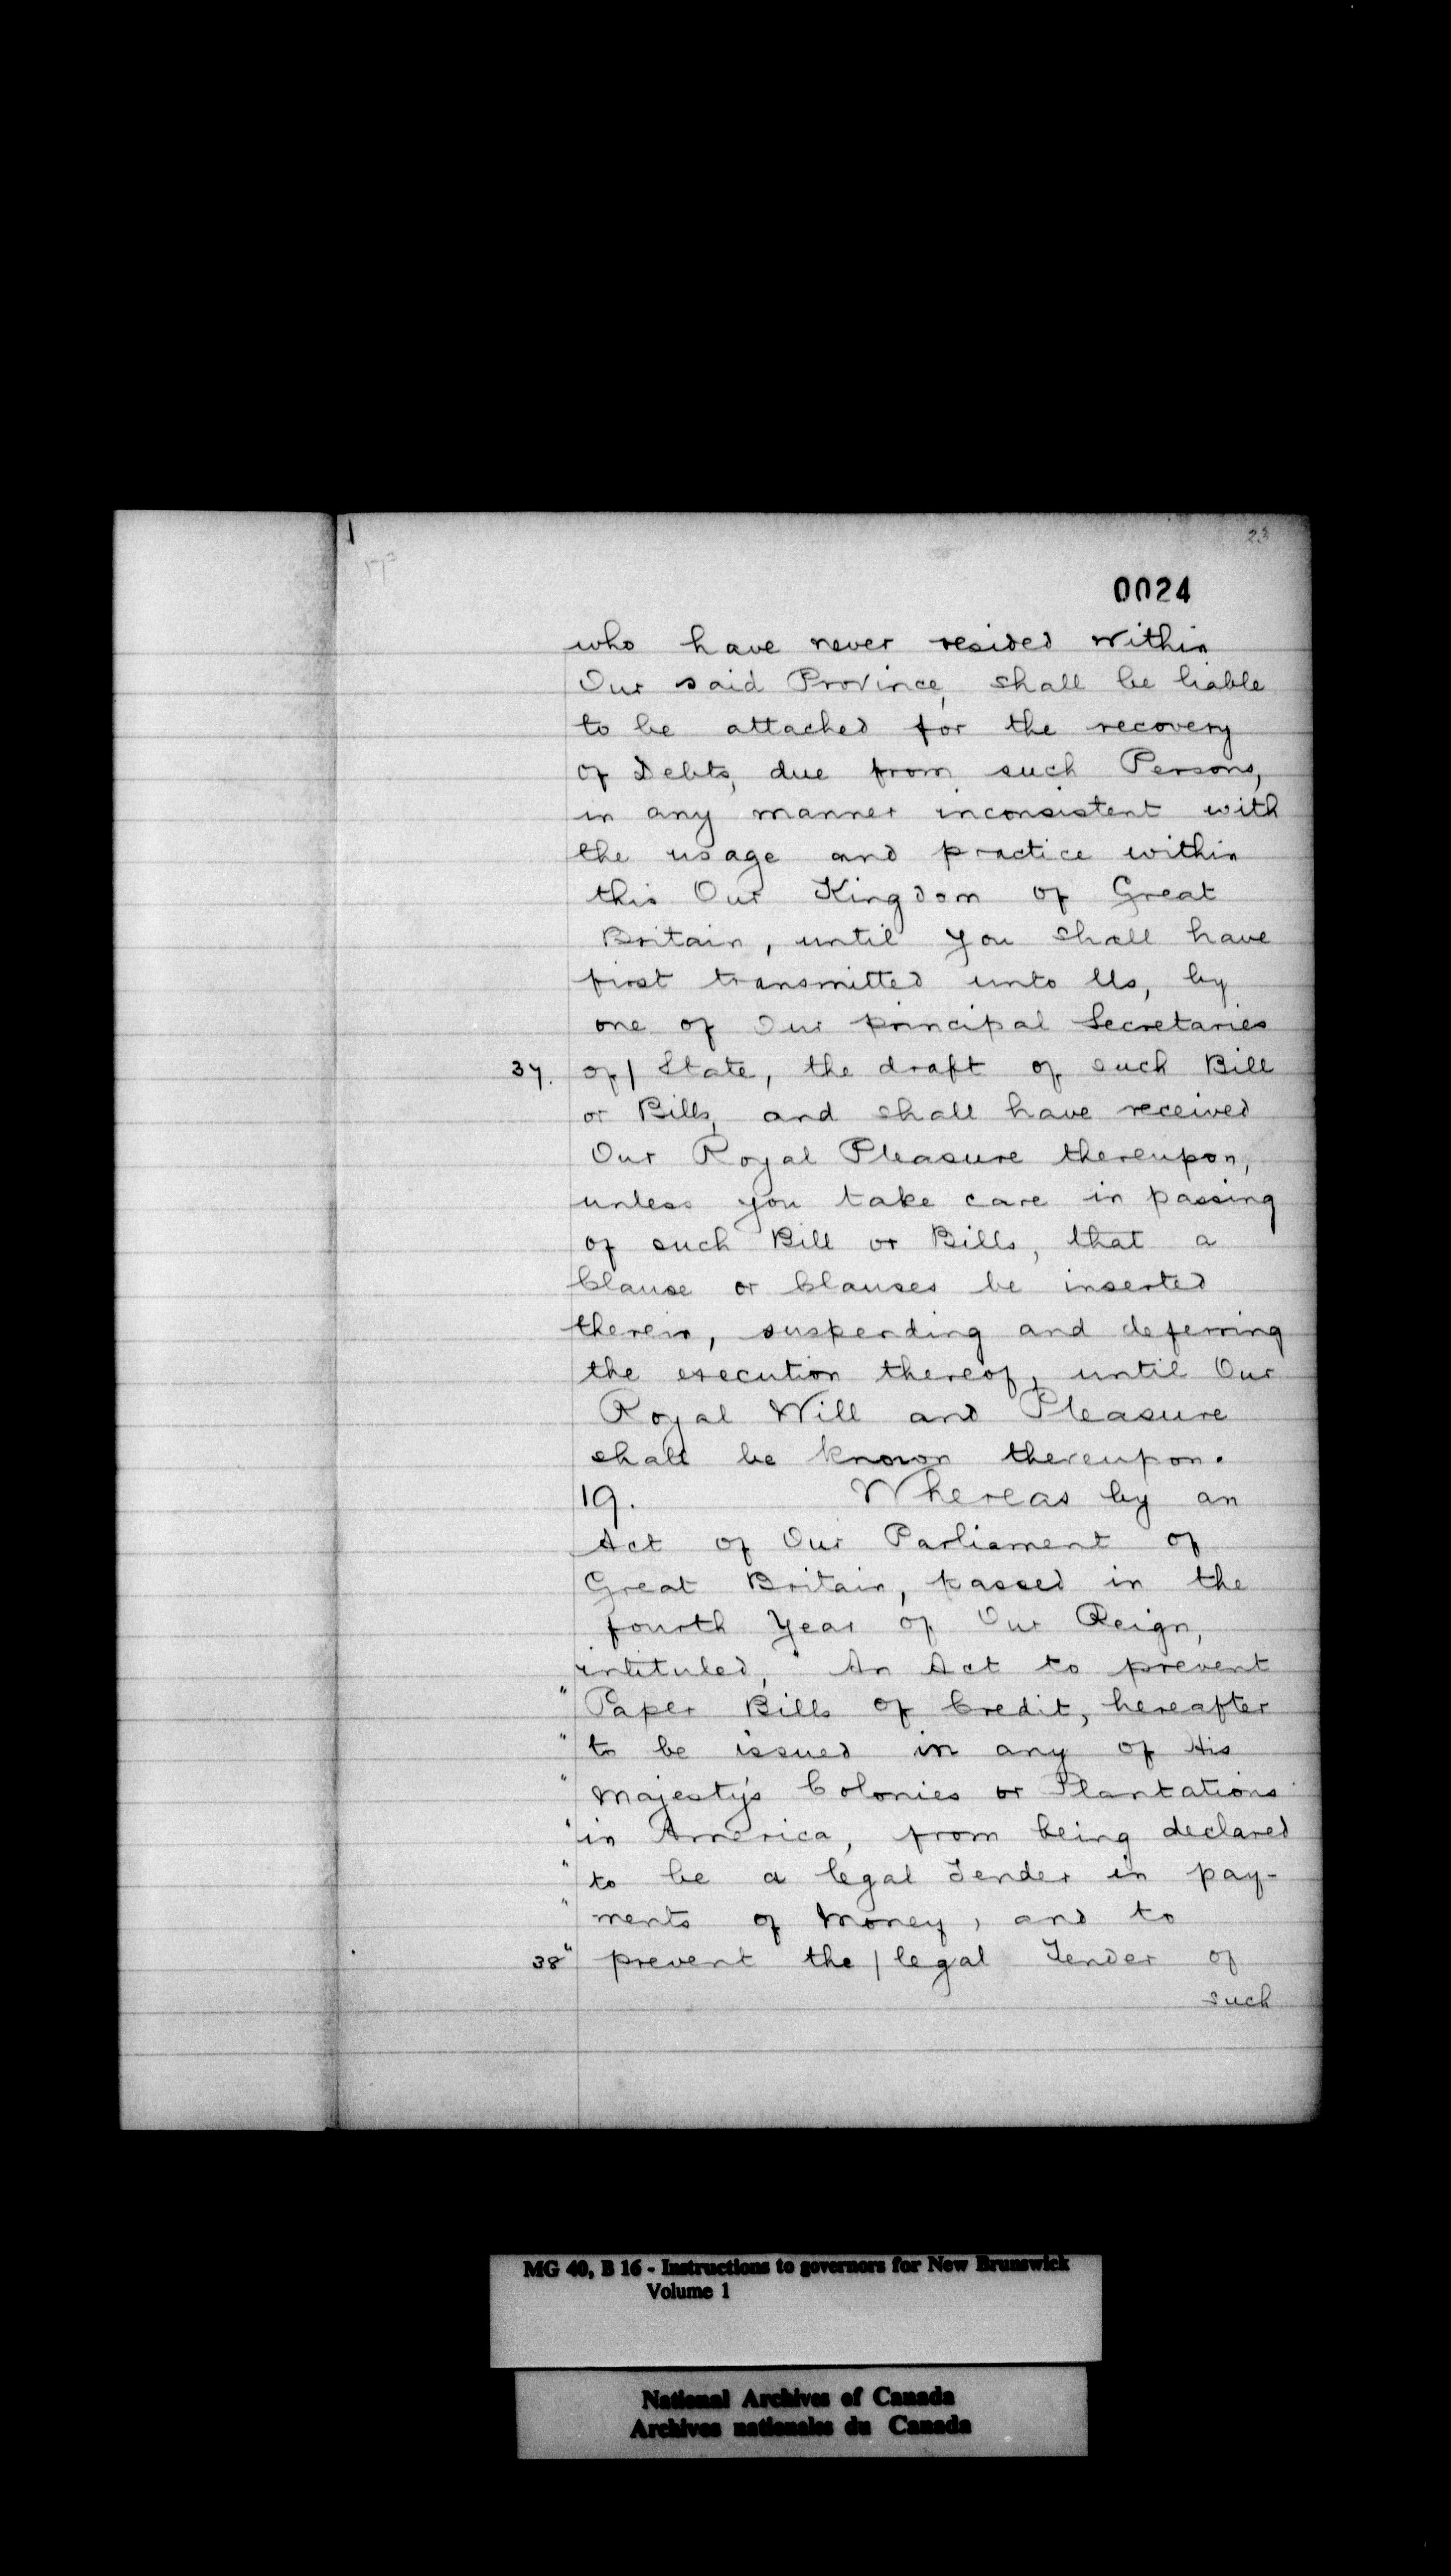 23
0024
who have never resided Within
Our said Province, shall be liable
to be attached for the recovery
of Debts, due from such Persons,
in any manner inconsistent with
the usage and practice within
this Our Kingdom of Great
Britain, until you shall have
first transmitted unto Us, by
one of Our principal Secretaries
37. of / State, the draft of such Bill
or Bills, and shall have received
Our Royal Pleasure thereupon,
unless you take care in passing
of such Bill or Bills, that a
Clause or Clauses be inserted
therein, suspending and deferring
the execution thereof, until Our
Royal Will and Pleasure
shall be known thereupon.
19. Whereas by an
Act of Our Parliament of
Great Britain, passed in the
fourth Year of Our Reign,
intituled, " An Act to prevent
" Paper Bills of Credit, hereafter
" to be issued in any of His
" Majesty's Colonies or Plantations
" in America, from being declared
" to be a legal Tender in pay-
" ments of Money, and to
38 " prevent the / legal Tender of
such
MG 40, B 16 - Instructions to governors for New Brunswick
Volume 1
National Archives of Canada
Archives nationales du Canada